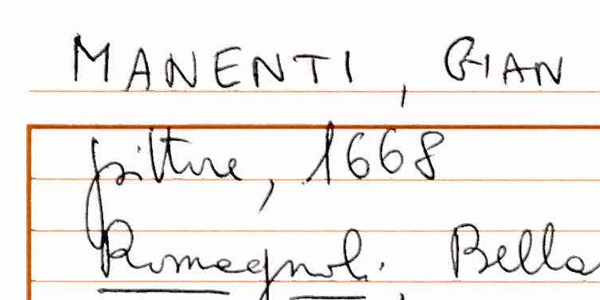 MANENTI, GIAN
pitture, 1668
Romagnoli. Bella